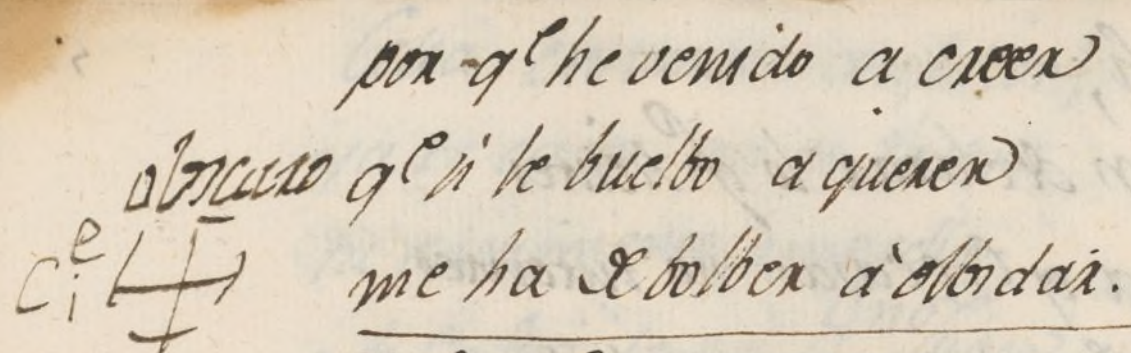 por q^e he venido a creer
obscuro q^e si le buelbo a querer
me ha de bolber à olbidar.